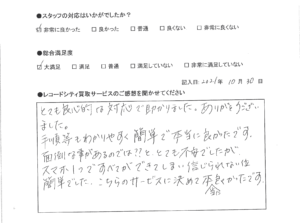 ●スタッフの対応はいかがでしたか？
☑非常に良かった □良かった □普通 □良くない □非常に良くない
●総合満足度
☑大満足 □満足 □普通 □満足していない □非常に満足していない
記入日 2021年 10月 30日
●レコードシティ買取サービスのご感想を聞かせてください
とても良心的な対応で助かりました。ありがとうござい
ました。
手順等もわかりやすく簡単で本当に良かったです。
面倒な事があるのでは!?と とても不安でしたが
スマホ1つですべてができてしまい信じられない程
簡単でした。こちらのサービスに決めて本当良かったです